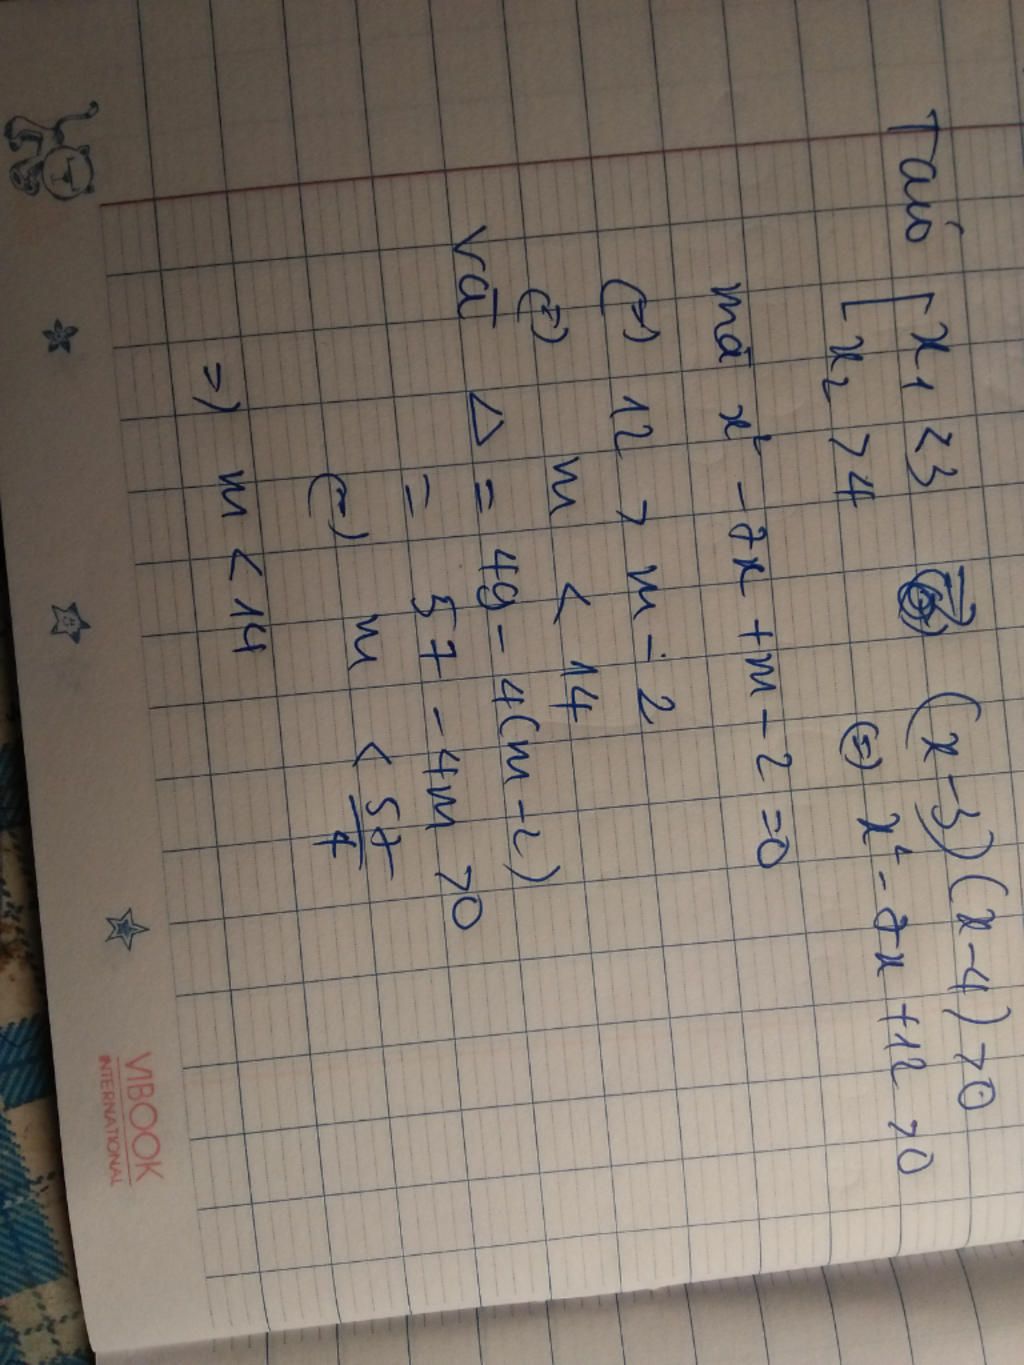 Taiô [ x1 < 3 => (x-3)(x-4) > 0
[ x2 > 4 (=) x² - 7x + 12 > 0
mà x² - 7x + m - 2 = 0
(=) 12 > m - 2
(=) m < 14
và Δ = 49 - 4(m-2)
= 57 - 4m > 0
(=) m < 57/4
=) m < 14
VIBOOK
INTERNATIONAL